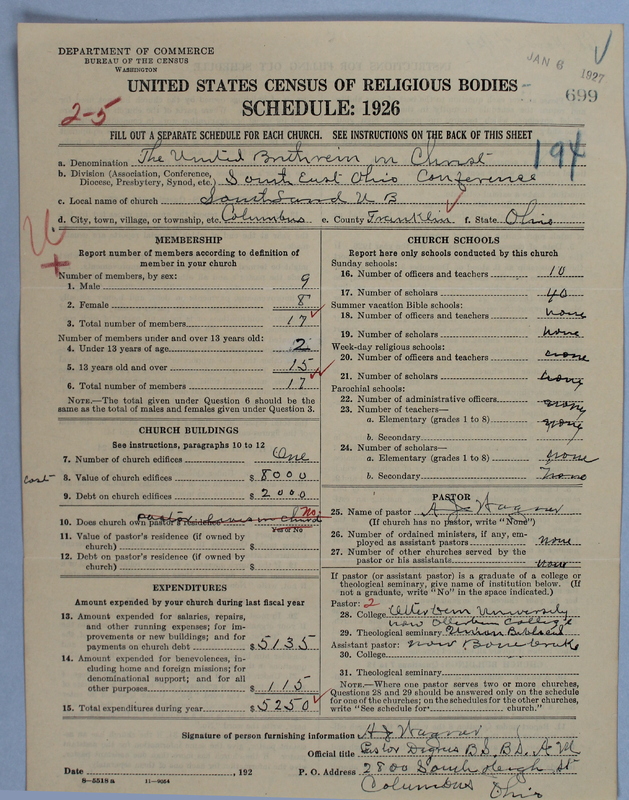 DEPARTMENT OF COMMERCE
BUREAU OF THE CENSUS
WASHINGTON
JAN 6 1927
699
UNITED STATES CENSUS OF RELIGIOUS BODIES
SCHEDULE: 1926
2-5
FILL OUT A SEPARATE SCHEDULE FOR EACH CHURCH. SEE INSTRUCTIONS ON THE BACK OF THIS SHEET
194
a. Denomination The United Brethrein in Christ
b. Division (Association, Conference, Diocese, Presbytery, Synod, etc.) South East Ohio Conference
c. Local name of church U B
d. City, town, village, or township, etc. Columbus e. County Franklin f. State Ohio
MEMBERSHIP
Report number of members according to definition of member in your church
Number of members, by sex:
1. Male 9
2. Female 8
3. Total number of members 17
Number of members under and over 13 years old:
4. Under 13 years of age 2
5. 13 years old and over 15
6. Total number of members 17
NOTE.—The total given under Question 6 should be the same as the total of males and females given under Question 3.
CHURCH BUILDINGS
See instructions, paragraphs 10 to 12
7. Number of church edifices One
cost 8. Value of church edifices $ 8000
9. Debt on church edifices $ 2000
10. Does church own pastor's residence? No
Yes or No
11. Value of pastor's residence (if owned by church) $
12. Debt on pastor's residence (if owned by church) $
EXPENDITURES
Amount expended by your church during last fiscal year
13. Amount expended for salaries, repairs, and other running expenses; for improvements or new buildings; and for payments on church debt $ 5135
14. Amount expended for benevolences, including home and foreign missions; for denominational support; and for all other purposes $ 115
15. Total expenditures during year $ 5250
CHURCH SCHOOLS
Report here only schools conducted by this church
Sunday schools:
16. Number of officers and teachers 10
17. Number of scholars 40
Summer vacation Bible schools:
18. Number of officers and teachers none
19. Number of scholars none
Week-day religious schools:
20. Number of officers and teachers none
21. Number of scholars none
Parochial schools:
22. Number of administrative officers none
23. Number of teachers—
a. Elementary (grades 1 to 8) none
b. Secondary
24. Number of scholars—
a. Elementary (grades 1 to 8) none
b. Secondary none
PASTOR
25. Name of pastor Wagner
(If church has no pastor, write "None")
26. Number of ordained ministers, if any, employed as assistant pastors none
27. Number of other churches served by the pastor or his assistants none
If pastor (or assistant pastor) is a graduate of a college or theological seminary, give name of institution below. (If not a graduate, write "No" in the space indicated.)
Pastor: 2
28. College Otterbein University
now Otterbein College
29. Theological seminary Union Biblical
Assistant pastor: now Bonebrake
30. College
31. Theological seminary
NOTE.—Where one pastor serves two or more churches, Questions 28 and 29 should be answered only on the schedule for one of the churches; on the schedules for the other churches, write "See schedule for church."
Signature of person furnishing information Wagner
Official title Pastor Degrees B.S. B.D. A M
Date , 192 P. O. Address 2800 South High St
8—5518 a 11—9054 Columbus Ohio